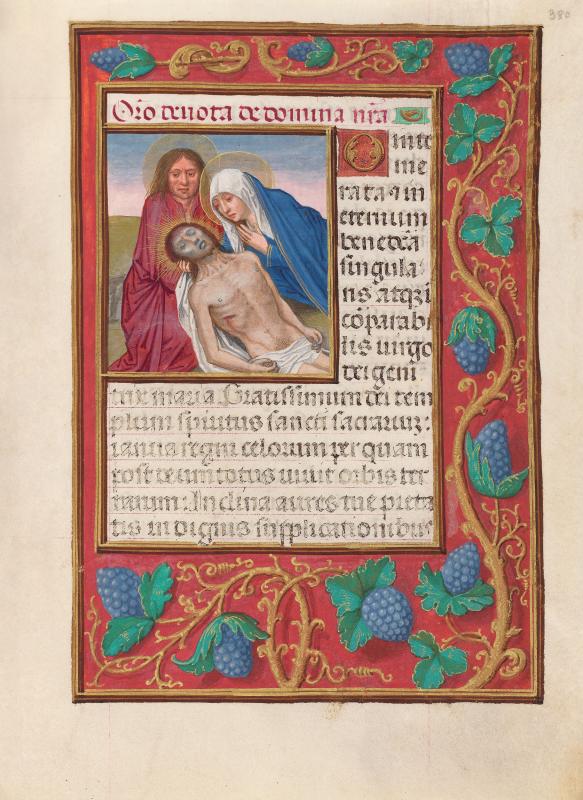 380
Oro deuota de domina nr̄a
O inte
me
rata ⁊ in
eternum
benedc̄a
singula
ris atqꝫ i
cōparabi
lis uirgo
dei geni
trix maria Gratissimum dei tem
plum spiritus sancti sacrariuꝫ.
ianua regni celorum per quam
post deum totus uiuit orbis ter
rarum. Inclina aures tue pieta
tis indignis supplicationibus